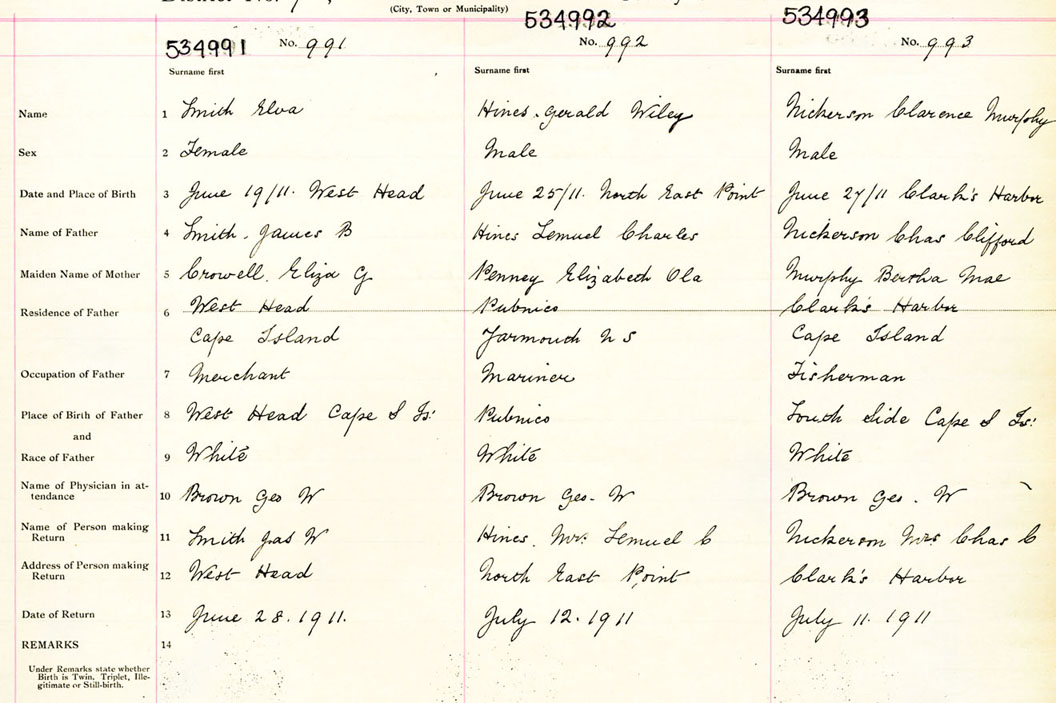 (City, Town or Municipality)
534991 No. 991
534992
No. 992
534993
No. 993
Surname first
Surname first
Surname first
Name 1 Smith Elva
Hines. Gerald Wiley
Nickerson Clarence Murphy
Sex 2 Female
Male
Male
Date and Place of Birth 3 June 19/11. West Head
June 25/11. North East Point
June 27/11 Clark's Harbor
Name of Father 4 Smith. James B
Hines Lemuel Charles
Nickerson Chas Clifford
Maiden Name of Mother 5 Crowell. Eliza G
Penney Elizabeth Ola
Murphy Bertha Mae
Residence of Father 6 West Head
Cape Island
Pubnico
Yarmouth N S
Clark's Harbor
Cape Island
Occupation of Father 7 Merchant
Mariner
Fisherman
Place of Birth of Father 8 West Head Cape S Is:
Pubnico
South Side Cape S Is:
and
Race of Father 9 White
White
White
Name of Physician in at-
tendance 10 Brown Geo W
Brown Geo. W
Brown Geo. W
Name of Person making
Return 11 Smith Jas W
Hines. Mrs. Lemuel C
Nickerson Mrs Chas C
Address of Person making
Return 12 West Head
North East Point
Clark's Harbor
Date of Return 13 June 28. 1911.
July 12. 1911
July 11. 1911
REMARKS 14
Under Remarks state whether
Birth is Twin, Triplet, Ille-
gitimate or Still-birth.